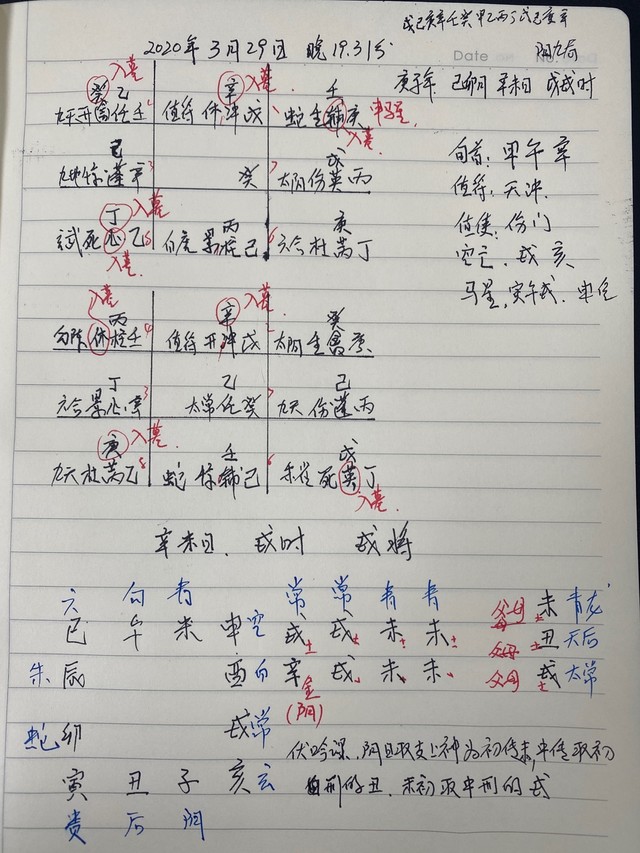 戊己庚辛壬癸甲乙丙丁戊己庚辛
2020年3月29日 晚19.31分 阳九局
Date No.
庚子年 己卯月 辛未日 戊戌时
入墓 入墓
癸乙 辛 壬
九天开芮任壬 值符休冲戊 蛇生辅庚 申马星
入墓
旬首:甲午辛
己 戊
九地惊蓬辛 癸 太阴伤英丙
值符:天冲
值使:伤门
丁 入墓 丙 庚
玄武死心乙 白虎景柱己 六合杜芮丁
入墓
空亡:戌亥
马星:寅午戌.申位
入墓 入墓
丙 辛 癸
勾陈休柱壬 值符开冲戊 太阴生禽庚
丁 乙 己
六合景心辛 太常任癸 九天伤蓬丙
庚 入墓 壬 戊
九天杜芮乙 蛇惊辅己 朱雀死英丁
入墓
辛未日.戌时 戌将
六 勾 青 常 常 青 青
巳 午 未 申空 戌土 戌土 未土 未土 父母 未土 青龙
父母 丑土 天后
朱辰 酉白 辛金 戌 未 未 父母 戌土 太常
(阴)
蛇卯 戌常
伏吟课.阴日取支上神为初传未,中传取初
寅 丑 子 亥玄 刑的丑.末初取中刑的戌
贵 后 阴